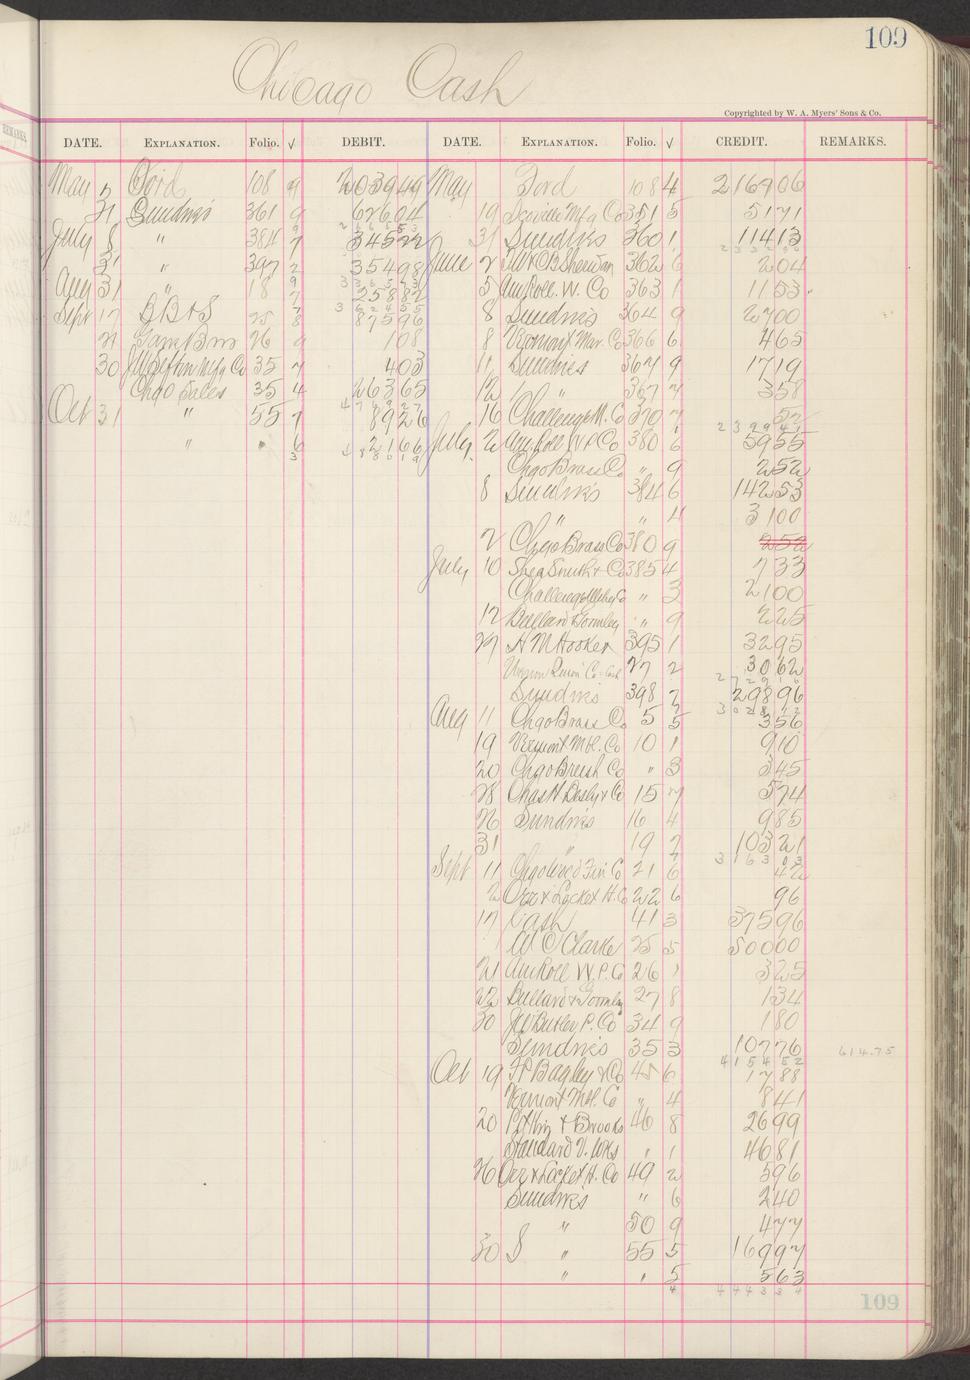 109
Chicago Cash
Copyrighted by W. A. Myers' Sons & Co.
REMARKS
DATE. EXPLANATION. Folio. √ DEBIT. DATE. EXPLANATION. Folio. √ CREDIT. REMARKS.
May Ford 108 9 203949 May Ford 108 4 216906
31 Sundries 361 9 62604 19 Scoville Mfg Co 351 5 5171
July 8 " 384 7 34522 31 Sundries 360 1 11413
31 " 397 2 35498 June 2 362 6 204
Aug 31 " 18 25882 5 Am Roll. W. Co 363 1 1153
Sept 17 B B & S 25 8 87596 8 Sundries 364 9 2700
21 26 9 108 8 Vermont Mar. Co 366 6 465
30 Mfg Co 35 7 403 11 Sundries 367 9 1719
Chgo Sales 35 4 26365 12 " 367 7 358
Oct 31 " 55 7 8926 16 Challenge M. Co 370 7 52
" " 6 2166 July 2 Am Roll W P Co 380 6 5955
Chgo Brass Co " 9 252
8 Sundries 384 6 14253
" " 4 3100
2 Chgo Brass Co 380 9 252
July 10 Shea Smith & Co 385 4 733
Challenge Co " 3 2100
12 Bullard & Gormley " 9 225
27 H M Hooker 395 1 3295
27 2 3062
Sundries 398 7 29896
Aug 11 Chgo Brass Co 5 5 356
19 Vermont Mbl. Co 10 1 910
20 Chgo Brush Co " 3 345
28 Chas H Besly & Co 15 7 574
26 Sundries 16 4 985
31 " 19 7 10321
Sept 11 Co 21 6 42
2 Orr & Locket H. Co 22 6 96
17 Cash 41 3 37596
W C Clarke 25 5 50000
21 Am Roll W. P. Co 26 1 325
22 Bullard & Gormley 27 8 134
30 J W Butler P. Co 34 9 180
Sundries 35 3 10776 614.75
415452
Oct 19 F P Bagley & Co 45 6 1788
Vermont Mbl. Co " 4 841
20 & Brooks 46 8 2699
Standard V. Wks " 1 4681
26 Orr & Locket H. Co 49 2 596
Sundries " 6 240
" 50 9 477
30 S " 55 5 16997
" " 5 563
109